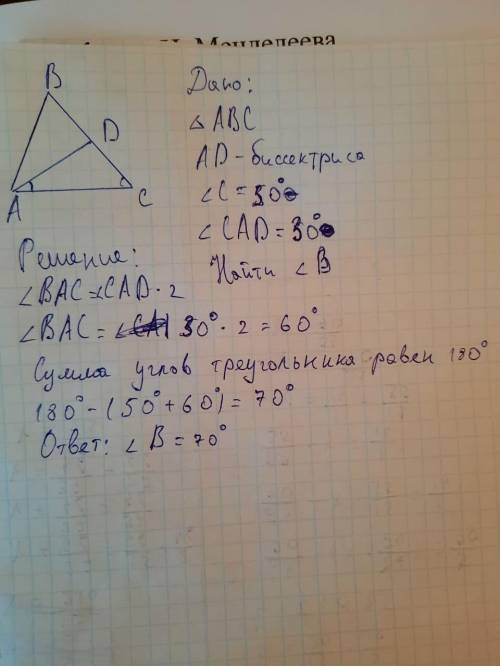 Менделеева
B
D
A
C
Дано:
△ ABC
AD - биссектриса
∠C = 50°
∠CAD = 30°
Найти ∠B
Решение:
∠BAC = ∠CAD · 2
∠BAC = 30° · 2 = 60°
Сумма углов треугольника равен 180°
180° - (50° + 60°) = 70°
Ответ: ∠B = 70°